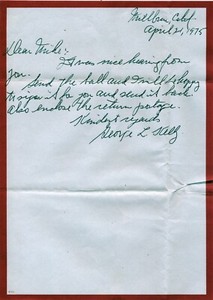 Millbrae, Calif
April 21, 1975
Dear Mike:
It was nice hearing from
you.
Send the ball and I will be happy
to sign it for you and send it back
also enclose the return postage.
Kindest regards
George L. Kelly